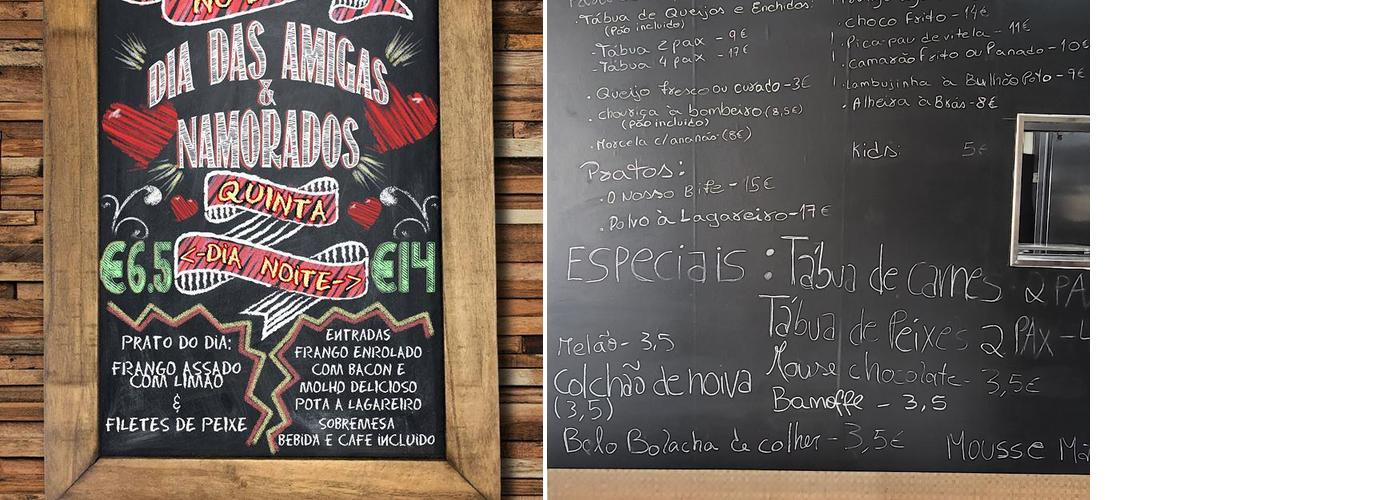 DIA DAS AMIGAS
&
NAMORADOS
QUINTA
€6.5
<-DIA NOITE->
€14
PRATO DO DIA:
FRANGO ASSADO
COM LIMÃO
&
FILETES DE PEIXE
ENTRADAS
FRANGO ENROLADO
COM BACON E
MOLHO DELICIOSO
POTA A LAGAREIRO
SOBREMESA
BEBIDA E CAFE INCLUIDO
.Tábua de Queijos e Enchidos:
(Pão incluido)
-Tábua 2 pax - 9€
-Tábua 4 pax - 17€
. Queijo fresco ou curado - 3€
. chouriça à bombeiro (8,5€)
(pão incluido)
. Morcela c/ananás (8€)
Pratos:
.O Nosso Bife - 15€
. Polvo à Lagareiro - 17€
. choco Frito - 14€
. Pica-pau de vitela - 11€
. Camarão Frito ou Panado - 10€
. Lambujinha à Bulhão Pato - 9€
. Alheira à Brás - 8€
Kids: 5€
ESPeciais : Tábua de carnes 2 PA
Tábua de Peixes 2 PAX -
Melão - 3,5
Colchão de noiva
(3,5)
Mouse chocolate - 3,5€
Banoffe - 3,5
Bolo Bolacha de colher - 3,5€
Mousse Ma